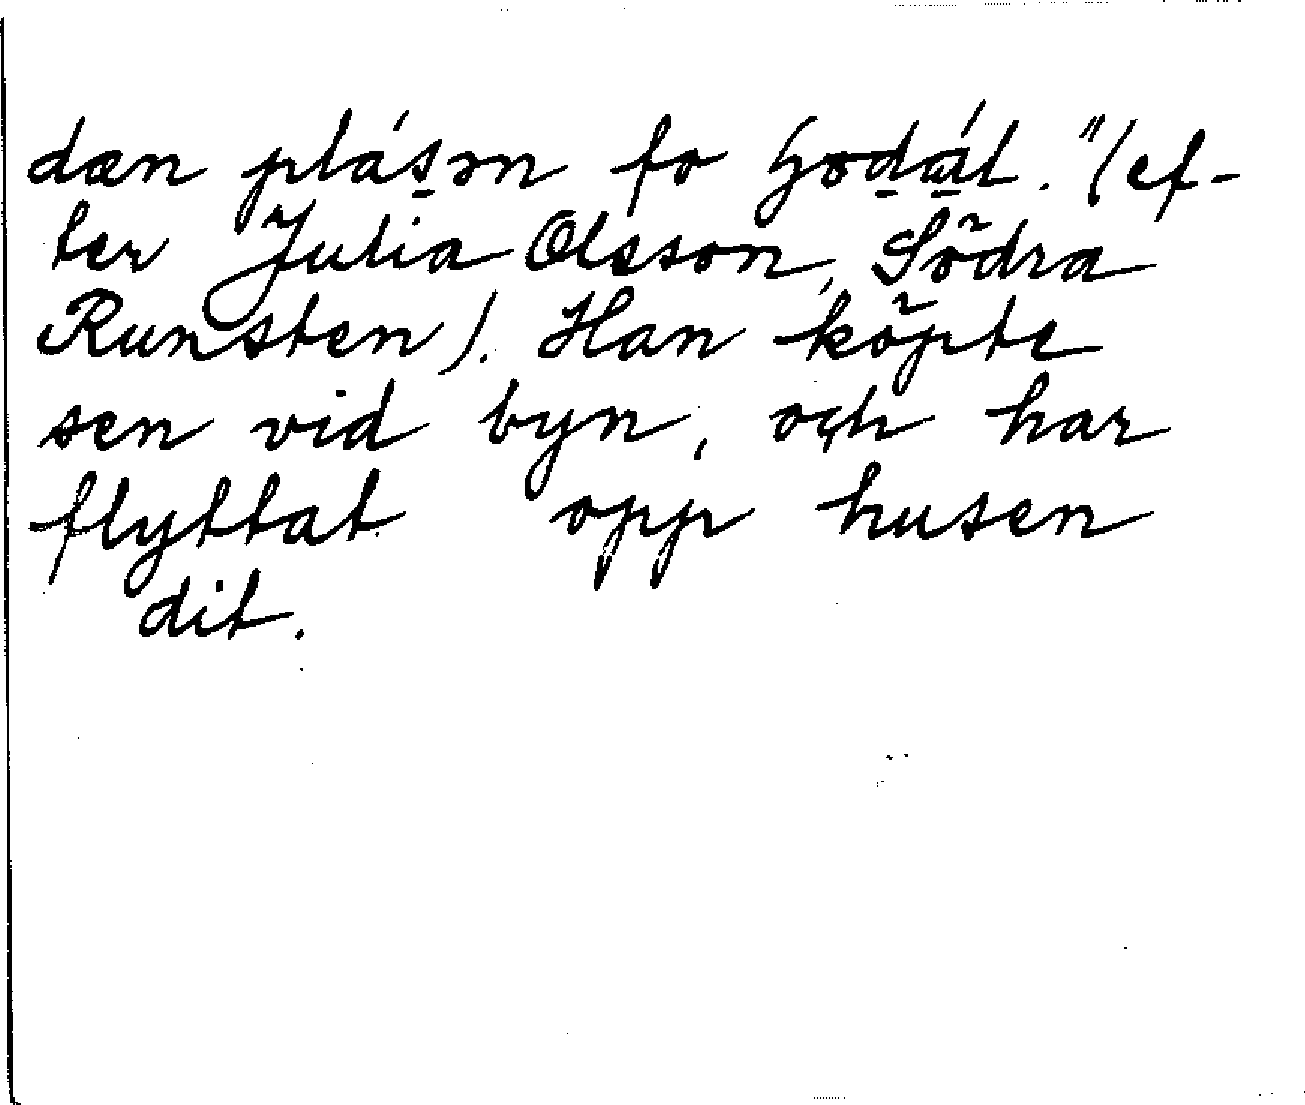 dæn plás̱ən fo
ter Julia Olsson, Södra
Runsten). Han köpte
sen vid byn, och har
flyttat opp husen
dit.